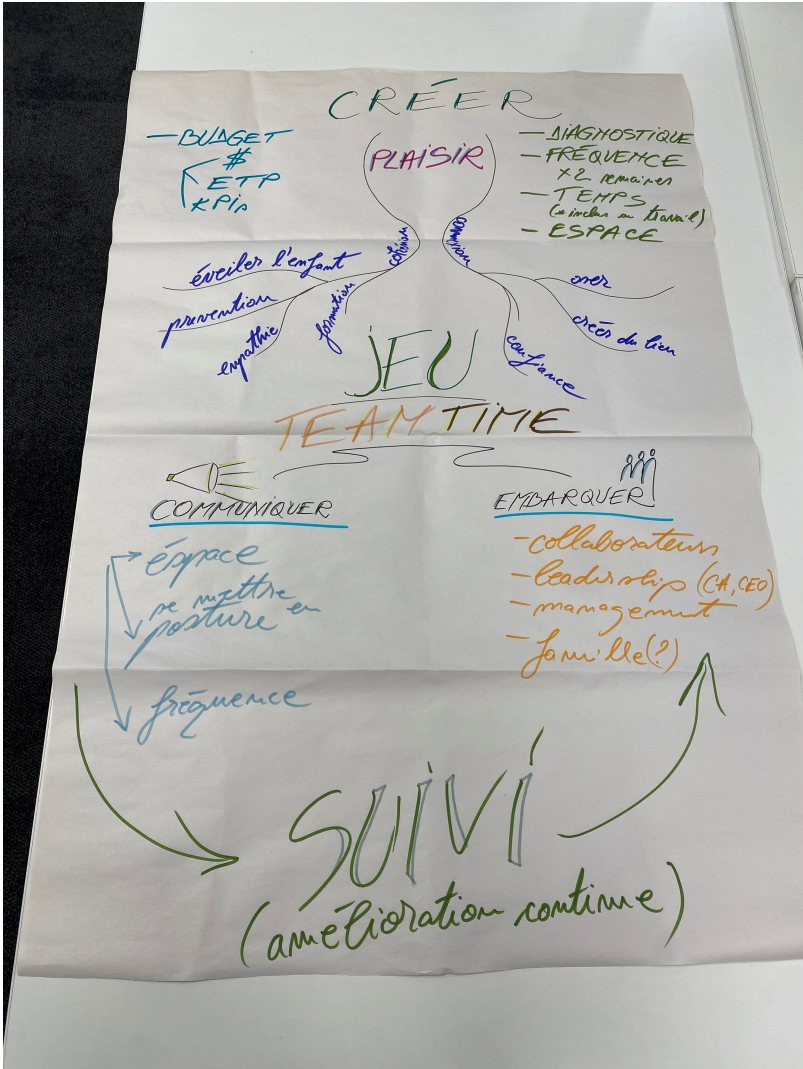 CRÉER
— BUDGET
$
ETP
KPis
PLAISIR
— DIAGNOSTIQUE
— FRÉQUENCE
x2 semaines
— TEMPS
(inclus en travail)
— ESPACE
cohésion
éveiller l'enfant
prévention
empathie
formation
oser
créer du lien
confiance
JEU
TEAM TIME
COMMUNIQUER
EMBARQUER
éspace
se mettre en
posture
fréquence
- collaborateurs
- leadership (CA, CEO)
- management
- famille (?)
SUIVI
(amélioration continue)